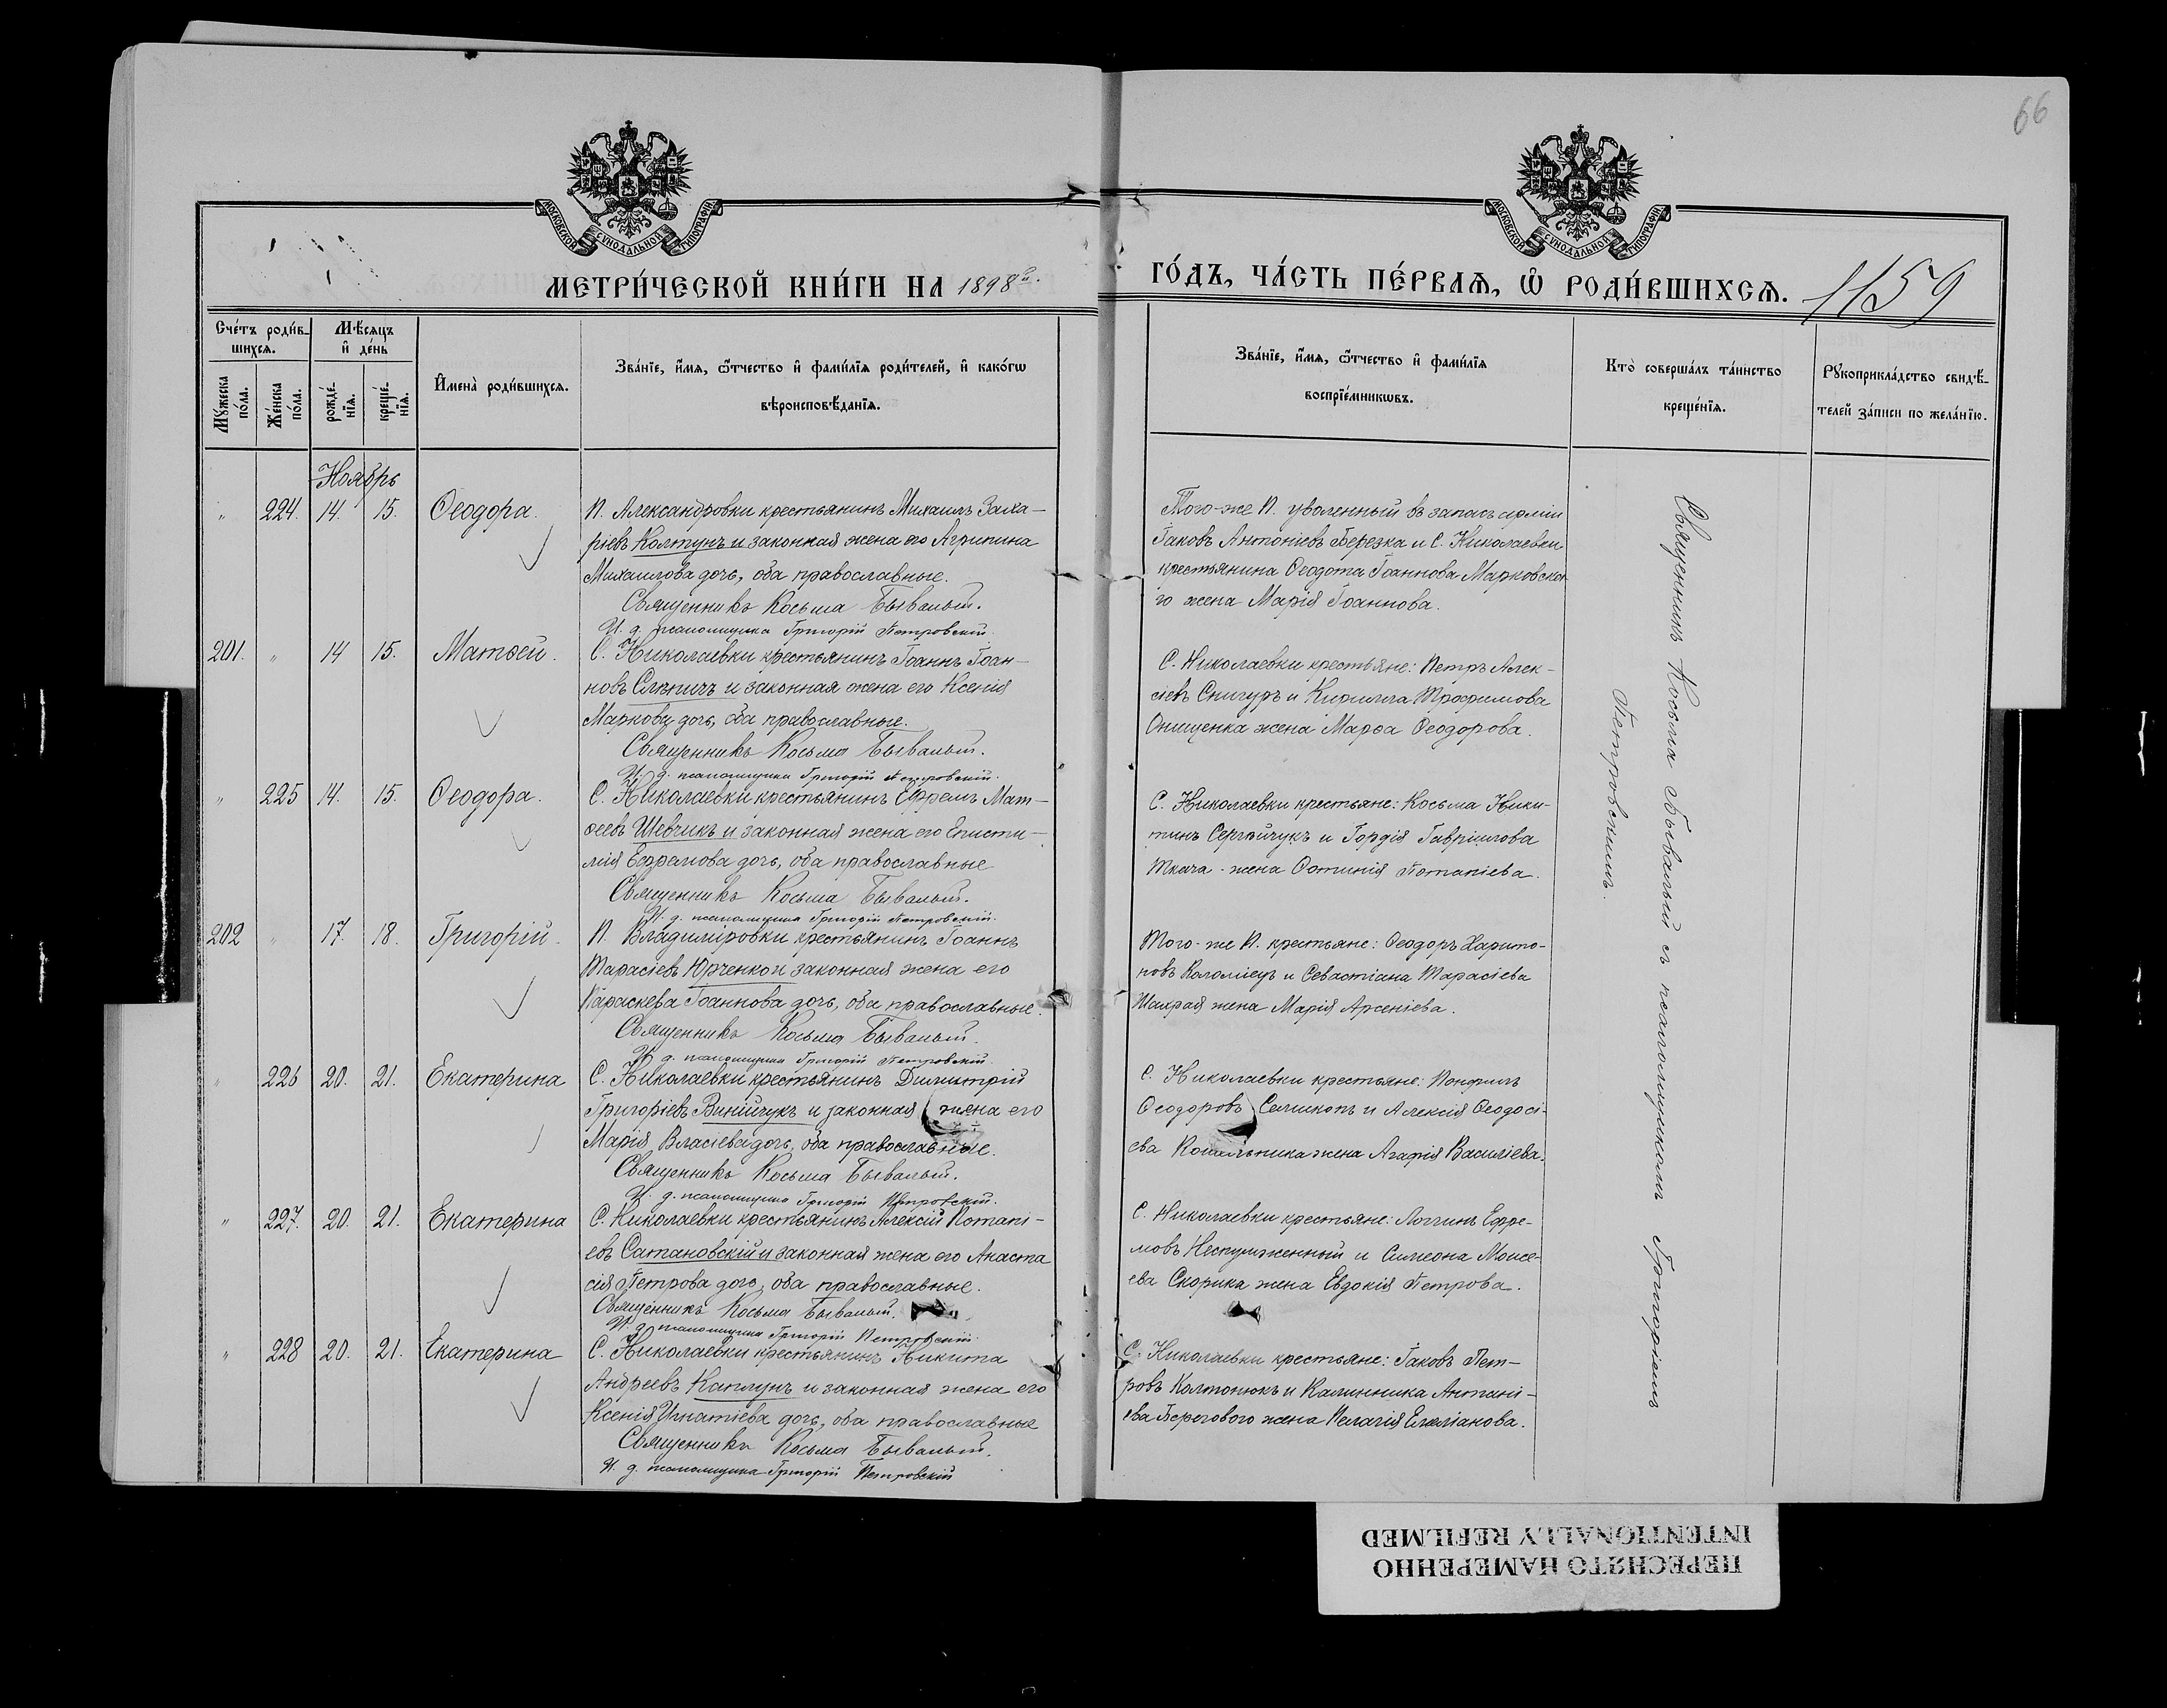 66
МОСКОВСКОЙ СѴНОДАЛЬНОЙ ТИПОГРАФІИ
МОСКОВСКОЙ СѴНОДАЛЬНОЙ ТИПОГРАФІИ
МЕТРИ́ЧЕСКОЙ КНИ́ГИ НА 1898й.
ГО́ДЪ, ЧА́СТЬ ПЕ́РВАѦ, Ѽ РОДИ́ВШИХСѦ. 1159
Сче́тъ роди́в-
шихсѧ.
Мѣ́сѧцъ
и҆ де́нь
Мꙋ́жеска
по́ла.
Же́нска
по́ла.
рожде́-
нїѧ.
креще́-
нїѧ.
И҆мена̀ роди́вшихсѧ.
Зва́нїе, и҆́мѧ, ѻ҆́тчество и҆ фами́лїѧ роди́телей, и҆ како́гѡ
вѣроисповѣ́данїѧ.
Зва́нїе, и҆́мѧ, ѻ҆́тчество и҆ фами́лїѧ
воспрїе́мникѡвъ.
Кто̀ соверша́лъ та́инство
креще́нїѧ.
Рꙋкоприкла́дство свидѣ́-
телей за́писи по жела́нїю.
Ноябрь
" 224. 14. 15. Ѳеодора.
П. Александровки крестьянинъ Михаилъ Заха-
ріевъ Колтунъ и законная жена его Агрипина
Михаилова дочь, оба православные.
Священникъ Косьма Бывалый.
И. д. псаломщика Григорій Петровскій.
Того-же П. уволенный въ запасъ арміи
Іаковъ Антоніевъ Березка и С. Николаевки
крестьянина Ѳеодота Іоаннова Марковска-
го жена Марія Іоаннова.
201. " 14 15. Матѳей.
С. Николаевки крестьянинъ Іоаннъ Іоан-
новъ Слѣпичъ и законная жена его Ксенія
Маркова дочь, оба православные.
Священникъ Косьма Бывалый.
И. д. псаломщика Григорій Петровскій.
С. Николаевки крестьяне: Петръ Алек-
сіевъ Снигуръ и Кирилла Трофимова
Онищенка жена Марѳа Ѳеодорова.
" 225 14. 15. Ѳеодора.
С. Николаевки крестьянинъ Ефремъ Мат-
ѳеевъ Шевчикъ и законная жена его Еписти-
мія Ефремова дочь, оба православные
Священникъ Косьма Бывалый.
И. д. псаломщика Григорій Петровскій.
С. Николаевки крестьяне: Косьма Ники-
тинъ Сергѣйчукъ и Гордія Гавріилова
Ткача - жена Фотинія Потапіева.
202 " 17. 18. Григорій.
П. Владиміровки крестьянинъ Іоаннъ
Тарасіевъ Юрченко и законная жена его
Параскева Іоаннова дочь, оба православные.
Священникъ Косьма Бывалый.
И. д. псаломщика Григорій Петровскій.
Того-же П. крестьяне: Ѳеодоръ Харито-
новъ Коломіецъ и Севастіана Тарасіева
Шахрая жена Марія Арсеніева.
" 226 20. 21. Екатерина
С. Николаевки крестьянинъ Димитрій
Григоріевъ Винійчукъ и законная жена его
Марія Власіева дочь, оба православные.
Священникъ Косьма Бывалый.
И. д. псаломщика Григорій Петровскій.
С. Николаевки крестьяне:
Ѳеодоровъ и Алексія Ѳеодосі-
ева жена Агафія Василіева.
" 227. 20. 21. Екатерина
С. Николаевки крестьянинъ Алексій Потапі-
евъ Сатановскій и законная жена его Анаста
сія Петрова дочь, оба православные.
Священникъ Косьма Бывалый.
И. д. псаломщика Григорій Петровскій.
С. Николаевки крестьяне: Логгинъ Ефре-
мовъ и Симеона Моисе-
ева Скорика жена Евдокія Петрова.
" 228 20. 21. Екатерина
С. Николаевки крестьянинъ Никита
Андреевъ Каплунъ и законная жена его
Ксенія Игнатіева дочь, оба православные
Священникъ Косьма Бывалый.
И. д. псаломщика Григорій Петровскій
С. Николаевки крестьяне: Іаковъ Пет-
ровъ Колтонюкъ и Калинника Антоні-
ева Берегового жена Пелагія Емеліанова.
Священникъ Косьма Бывалый съ псаломщикомъ Григоріемъ
Петровскимъ.
ПЕРЕСНЯТО НАМЕРЕННО
INTENTIONALLY REFILMED